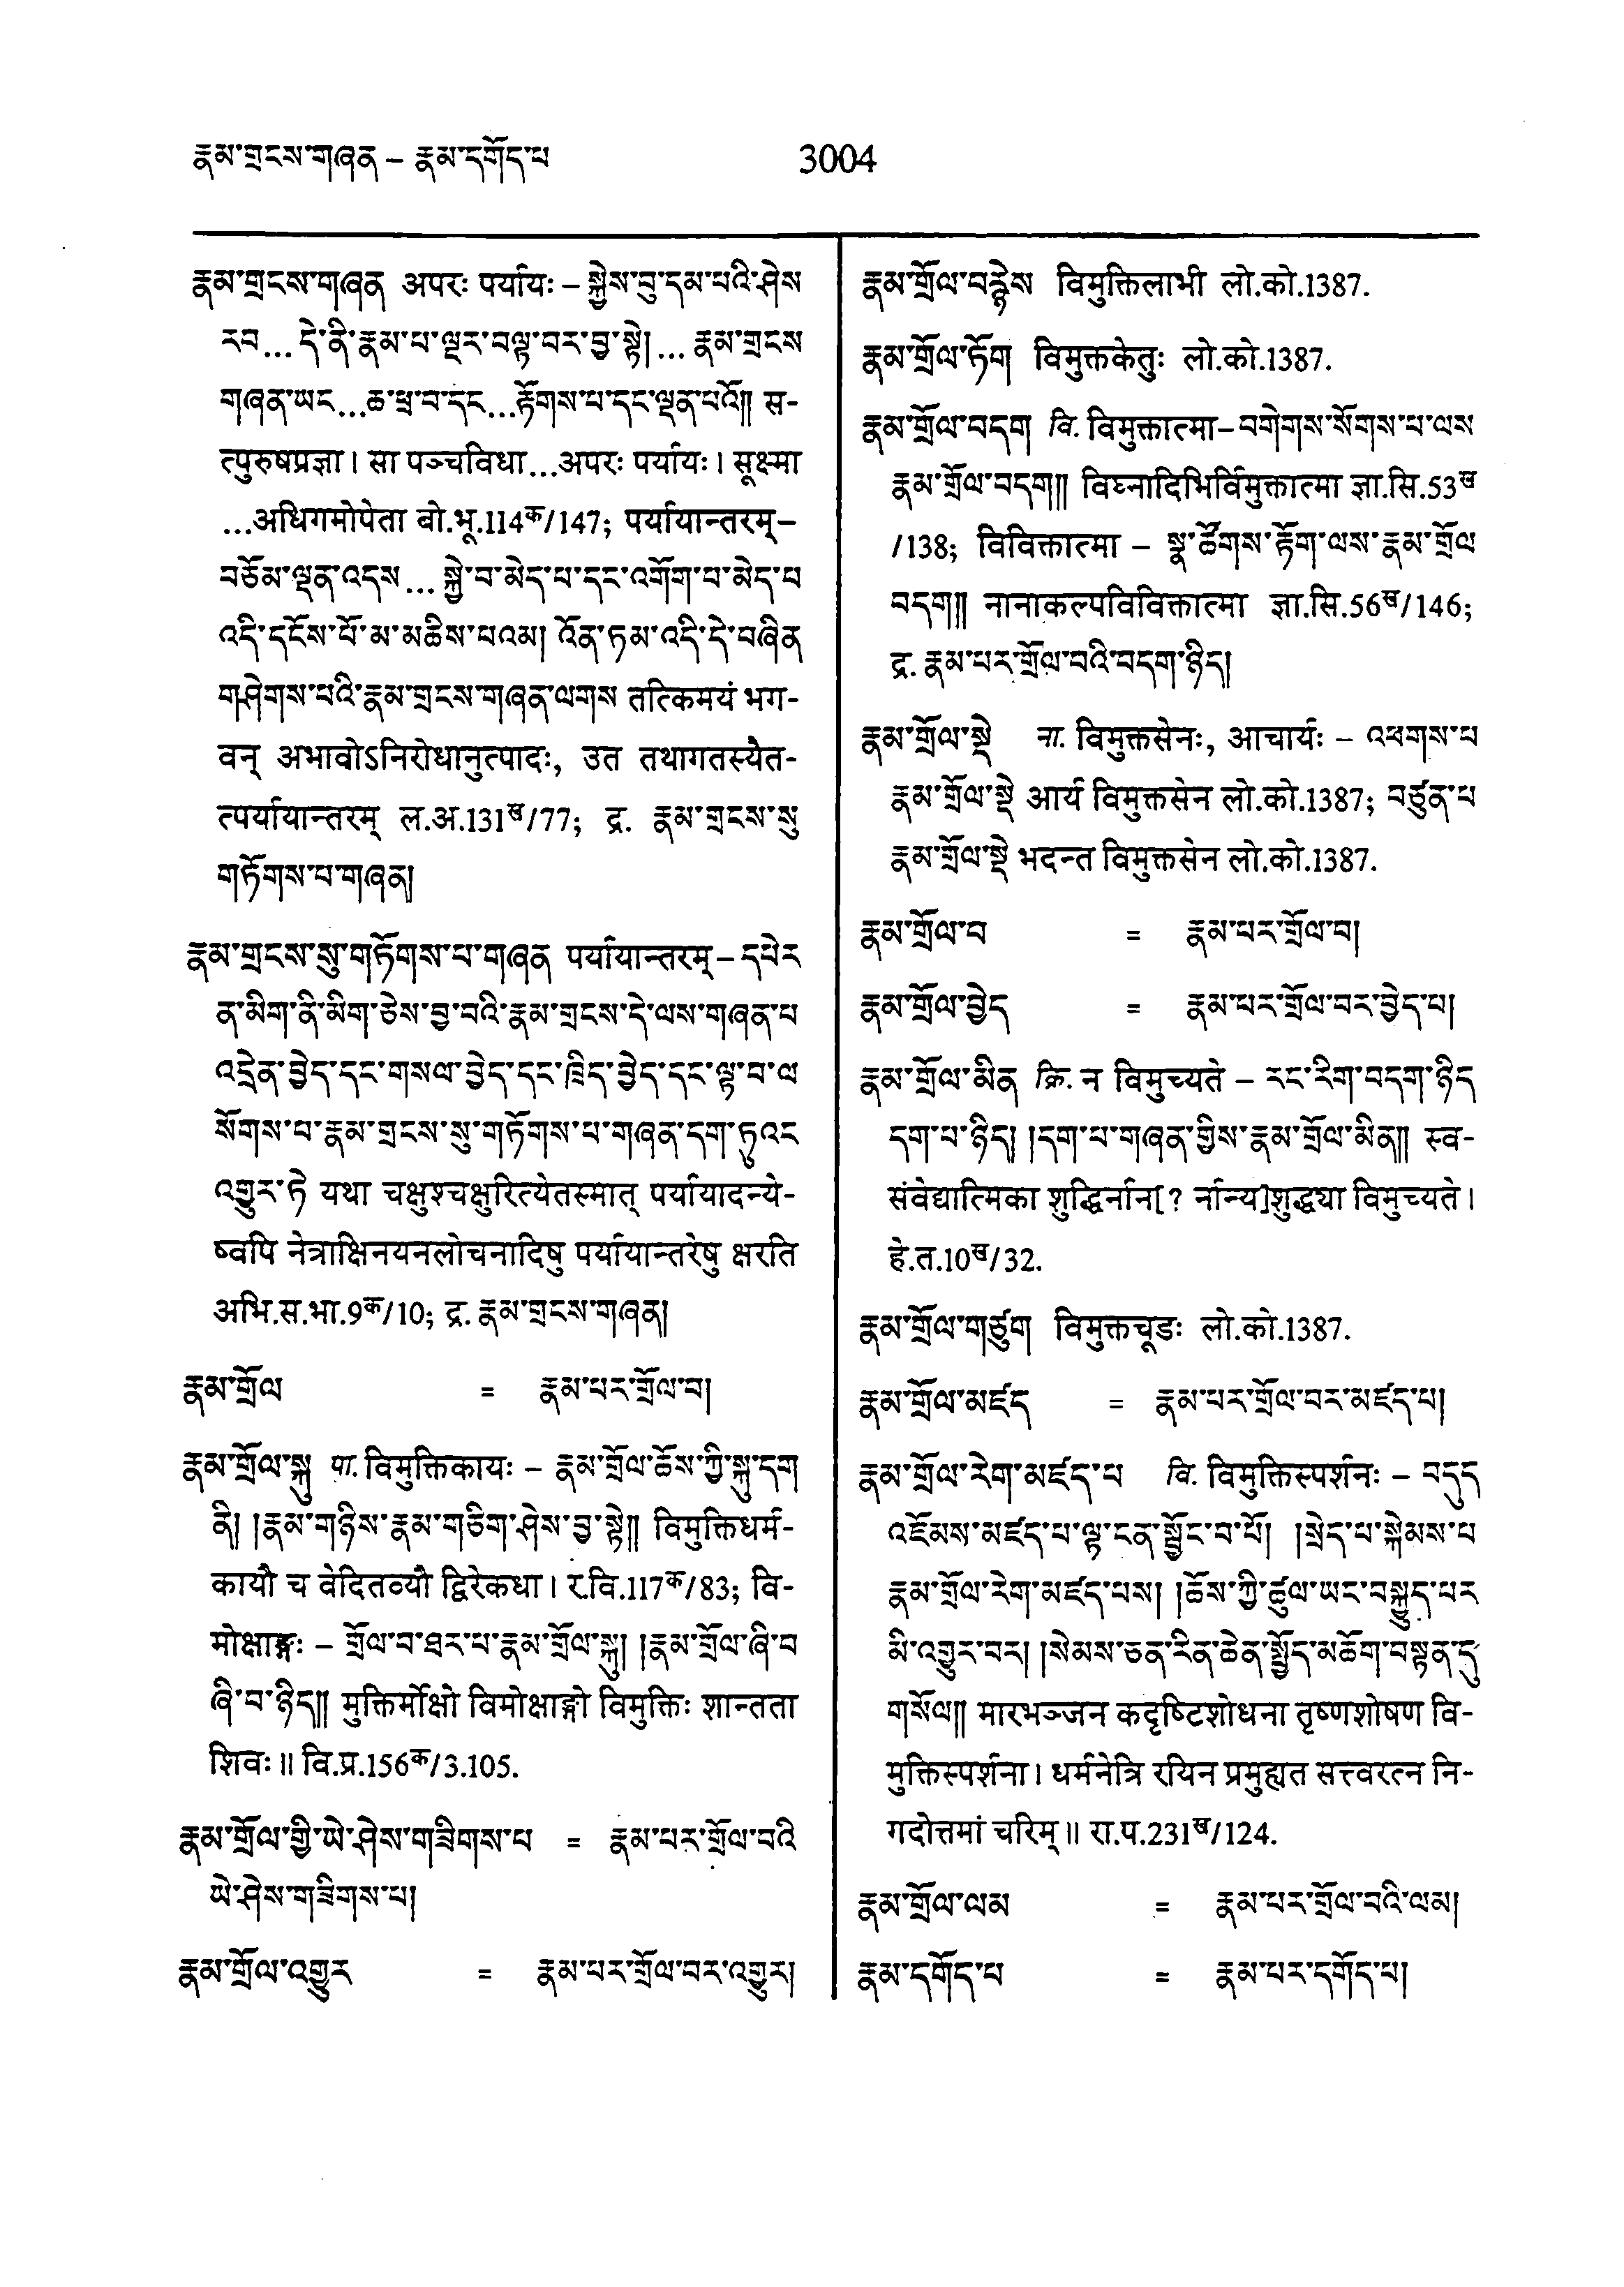 རྣམ་གྲངས་གཞན – རྣམ་དགོད་པ
3004
རྣམ་གྲངས་གཞན अपरः पर्यायः – སྐྱེས་བུ་དམ་པའི་ཤེས
རབ... དེ་ནི་རྣམ་པ་ལྔར་བལྟ་བར་བྱ་སྟེ།... རྣམ་གྲངས
གཞན་ཡང...ཆ་ཕྲ་བ་དང...རྟོགས་པ་དང་ལྡན་པའོ༎ स-
त्पुरुषप्रज्ञा। सा पञ्चविधा...अपरः पर्यायः। सूक्ष्मा
...अधिगमोपेता बो.भू.114क/147; पर्यायान्तरम्–
བཅོམ་ལྡན་འདས... སྐྱེ་བ་མེད་པ་དང་འགོག་པ་མེད་པ
འདི་དངོས་པོ་མ་མཆིས་པའམ། འོན་ཏམ་འདི་དེ་བཞིན
གཤེགས་པའི་རྣམ་གྲངས་གཞན་ལགས तत्किमयं भग-
वन् अभावोऽनिरोधानुत्पादः, उत तथागतस्यैत-
त्पर्यायान्तरम् ल.अ.131ख/77; द्र. རྣམ་གྲངས་སུ
གཏོགས་པ་གཞན།
རྣམ་གྲངས་སུ་གཏོགས་པ་གཞན पर्यायान्तरम् – དཔེར
ན་མིག་ནི་མིག་ཅེས་བྱ་བའི་རྣམ་གྲངས་དེ་ལས་གཞན་པ
འདྲེན་བྱེད་དང་གསལ་བྱེད་དང་ཁྲིད་བྱེད་དང་ལྟ་བ་ལ
སོགས་པ་རྣམ་གྲངས་སུ་གཏོགས་པ་གཞན་དག་ཏུའང
འགྱུར་ཏེ यथा चक्षुश्चक्षुरित्येतस्मात् पर्यायादन्ये-
ष्वपि नेत्राक्षिनयनलोचनादिषु पर्यायान्तरेषु क्षरति
अभि.स.भा.9क/10; द्र. རྣམ་གྲངས་གཞན།
རྣམ་གྲོལ = རྣམ་པར་གྲོལ་བ།
རྣམ་གྲོལ་སྐུ पा. विमुक्तिकायः – རྣམ་གྲོལ་ཆོས་ཀྱི་སྐུ་དག
ནི། །རྣམ་གཉིས་རྣམ་གཅིག་ཤེས་བྱ་སྟེ༎ विमुक्तिधर्म-
कायौ च वेदितव्यौ द्विरेकधा। र.वि.117क/83; वि-
मोक्षाङ्गः – གྲོལ་བ་ཐར་པ་རྣམ་གྲོལ་སྐུ། །རྣམ་གྲོལ་ཞི་བ
ཞི་བ་ཉིད༎ मुक्तिर्मोक्षो विमोक्षाङ्गो विमुक्तिः शान्तता
शिवः॥ वि.प्र.156क/3.105.
རྣམ་གྲོལ་གྱི་ཡེ་ཤེས་གཟིགས་པ = རྣམ་པར་གྲོལ་བའི
ཡེ་ཤེས་གཟིགས་པ།
རྣམ་གྲོལ་འགྱུར = རྣམ་པར་གྲོལ་བར་འགྱུར།
རྣམ་གྲོལ་བརྙེས विमुक्तिलाभी लो.को.1387.
རྣམ་གྲོལ་ཏོག विमुक्तकेतुः लो.को.1387.
རྣམ་གྲོལ་བདག वि. विमुक्तात्मा–བགེགས་སོགས་པ་ལས
རྣམ་གྲོལ་བདག༎ विघ्नादिभिर्विमुक्तात्मा ज्ञा.सि.53ख
/138; विविक्तात्मा – སྣ་ཚོགས་རྟོག་ལས་རྣམ་གྲོལ
བདག༎ नानाकल्पविविक्तात्मा ज्ञा.सि.56ख/146;
द्र. རྣམ་པར་གྲོལ་བའི་བདག་ཉིད།
རྣམ་གྲོལ་སྡེ ना. विमुक्तसेनः, आचार्यः – འཕགས་པ
རྣམ་གྲོལ་སྡེ आर्य विमुक्तसेन लो.को.1387; བཙུན་པ
རྣམ་གྲོལ་སྡེ भदन्त विमुक्तसेन लो.को.1387.
རྣམ་གྲོལ་བ = རྣམ་པར་གྲོལ་བ།
རྣམ་གྲོལ་བྱེད = རྣམ་པར་གྲོལ་བར་བྱེད་པ།
རྣམ་གྲོལ་མིན क्रि. न विमुच्यते – རང་རིག་བདག་ཉིད
དག་པ་ཉིད། །དག་པ་གཞན་གྱིས་རྣམ་གྲོལ་མིན༎ स्व-
संवेद्यात्मिका शुद्धिर्नान[? र्नान्य]शुद्ध्या विमुच्यते।
हे.त.10ख/32.
རྣམ་གྲོལ་གཙུག विमुक्तचूडः लो.को.1387.
རྣམ་གྲོལ་མཛད = རྣམ་པར་གྲོལ་བར་མཛད་པ།
རྣམ་གྲོལ་རེག་མཛད་པ वि. विमुक्तिस्पर्शनः – བདུད
འཇོམས་མཛད་པ་ལྟ་ངན་སྦྱོང་བ་པོ། །སྲེད་པ་སྐེམས་པ
རྣམ་གྲོལ་རེག་མཛད་པས། །ཆོས་ཀྱི་ཚུལ་ཡང་བསྐྱུད་པར
མི་འགྱུར་བར། །སེམས་ཅན་རིན་ཆེན་སྤྱོད་མཆོག་བསྟན་དུ
གསོལ༎ मारभञ्जन कदृष्टिशोधना तृष्णशोषण वि-
मुक्तिस्पर्शना। धर्मनेत्रि रयिन प्रमुह्यत सत्त्वरत्न नि-
गदोत्तमां चरिम्॥ रा.प.231ख/124.
རྣམ་གྲོལ་ལམ = རྣམ་པར་གྲོལ་བའི་ལམ།
རྣམ་དགོད་པ = རྣམ་པར་དགོད་པ།